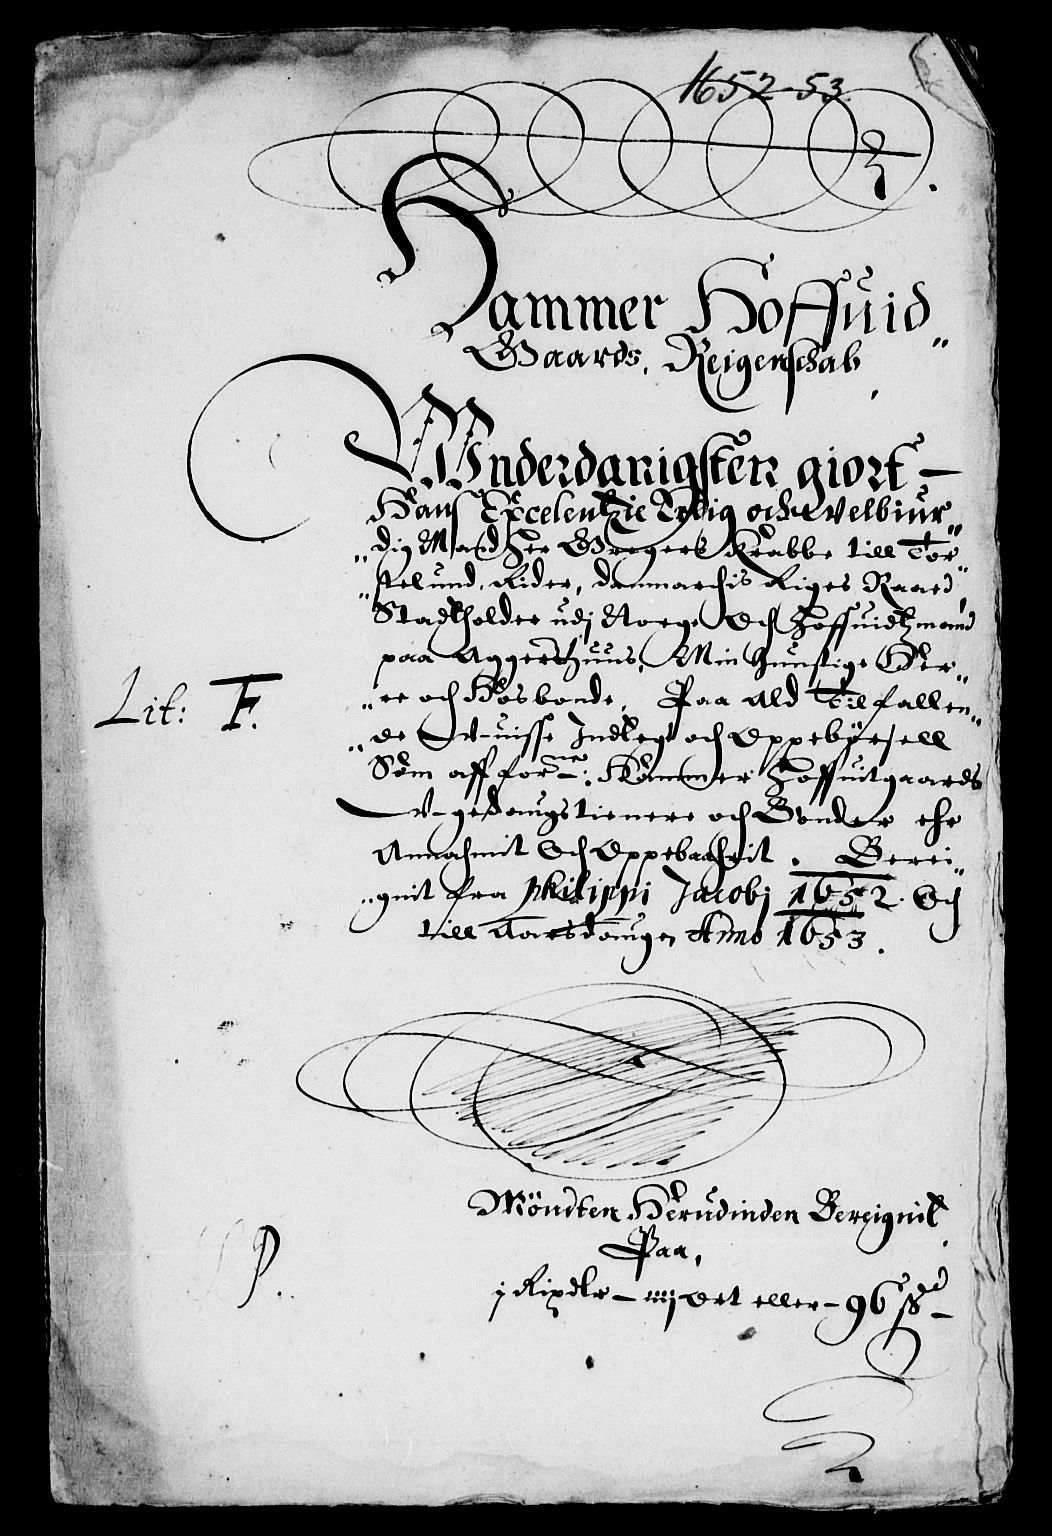 1652-53.
Hammer Hoffuid„
Gaards, Reigenschab
Wnderdanigsten giort —
Hans Excelentzie Erlig och Velbiur„
„dig Mand Her Gregers Krabbe till Tor„
„stelund, Rider, danmarchis Riges Raad,
Stadtholder udj Norge Och Hoffuidtzmand
paa Aggershuus, Min gunstige Her„
„re och Hosbonde, Paa Ald Tilfallen„
„de V-uisse Indtegt och Oppebørsell
Som aff forne: Hammer Hoffuitgaards
V-gedaugstienere och Bønder ehr
Annahmit Och Oppebaahrit. Berei„
„gnit fra Philippi Jacobj 1652. Och
till Aarsdaugen Anno 1653.
Lit: F.
Möndten Herudinden Bereignit
Paa,
P.
j Rixdlr — iiij Ort eller — 96 ß —